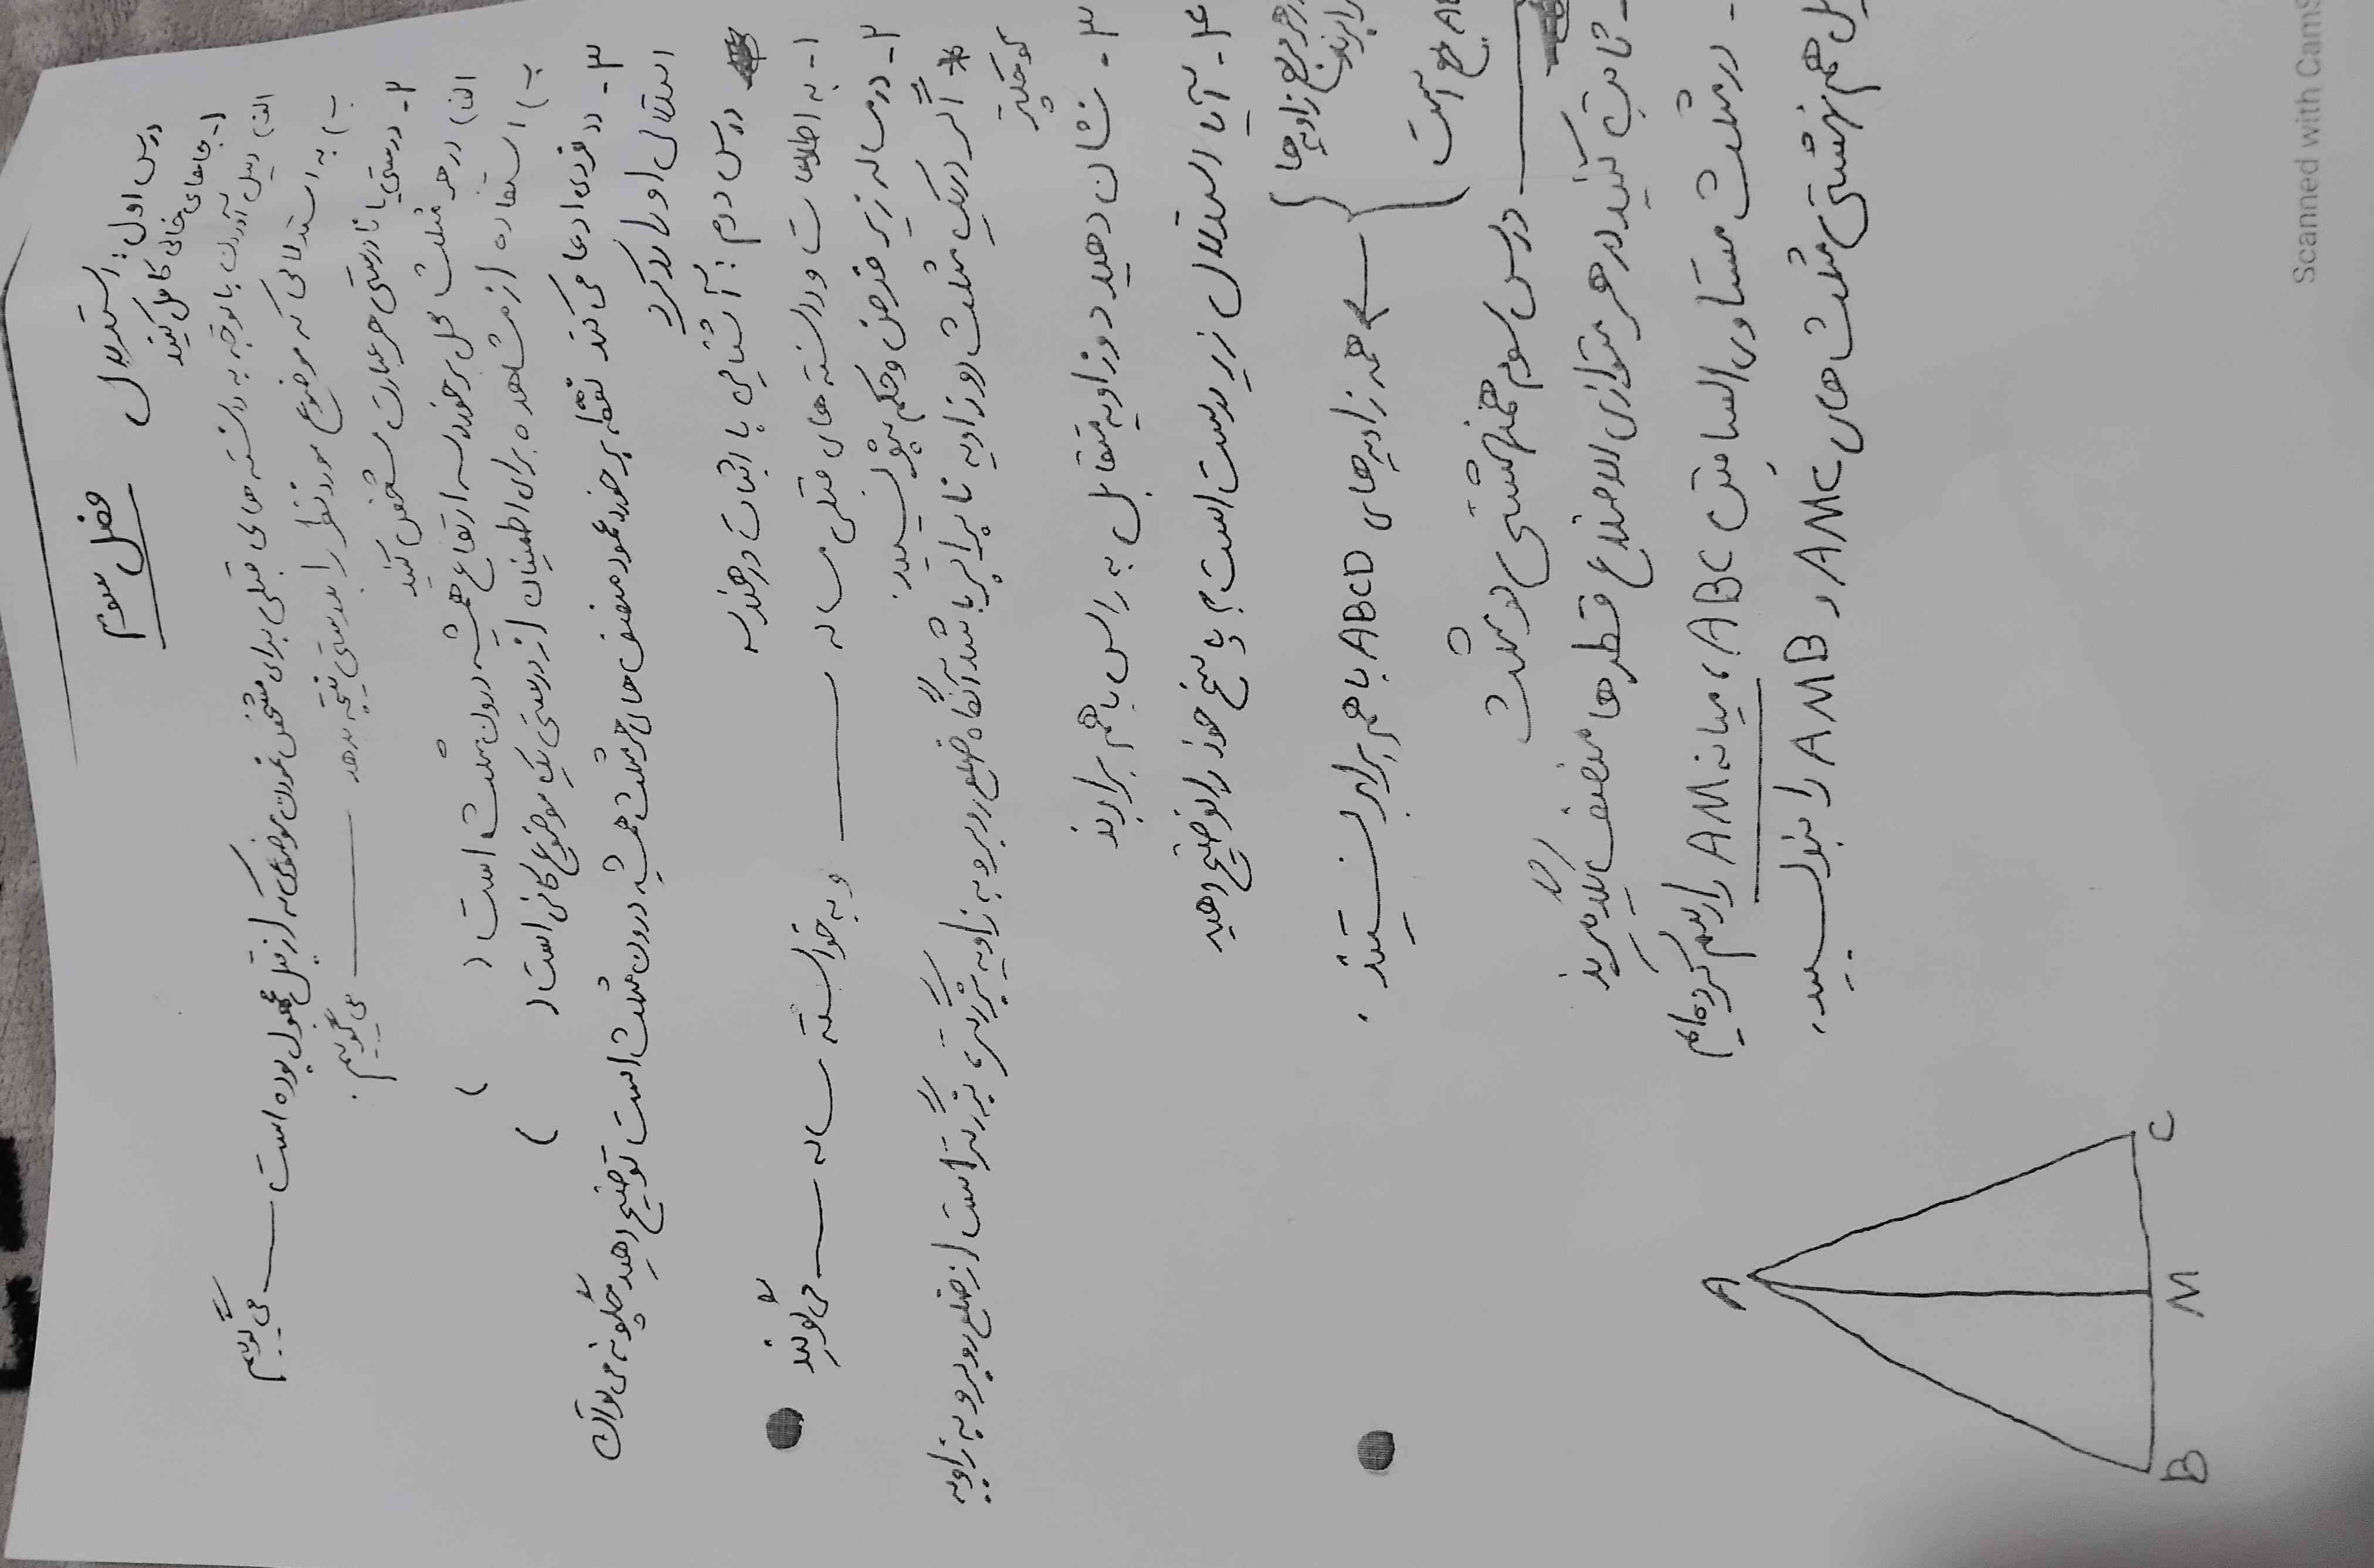 فصل سوم
درس اول: استدلال
۱- جاهای خالی کامل کنید
الف) دلیل آوردن با توجه به دانسته های قبلی برای مشخص نمودن موضوعی که از قبل مجهول بوده است ـــــ می گوییم
ب) به استدلالی که موضوع مورد نظر را بدرستی نتیجه بدهد ـــــ می گوییم.
۲- درستی یا نادرستی هر عبارت مشخص کنید
الف) در هر مثلث محل برخورد سه ارتفاع همیشه درون مثلث است ( )
ب) استفاده از مشاهده برای اطمینان از درستی یک موضوع کافی است ( )
۳- فردی ادعا می کند نقطه برخورد عمود منصف های هر مثلث همیشه درون مثلث است توضیح دهید چگونه می توان
استدلال او را رد کرد
درس دوم: آشنایی با اثبات در هندسه
۱- به اطلاعات و دانسته های قبلی مساله ـــــ و به خواسته مساله ـــــ می گویند
۲- در مساله زیر فرض و حکم بنویسید.
* اگر در یک مثلث دو زاویه نابرابر باشد آنگاه ضلع روبرو به زاویه بزرگتر، بزرگتر است از ضلع روبرو به زاویه
کوچکتر
۳- نشان دهید دو زاویه متقابل به راس باهم برابرند
۴- آیا استدلال زیر درست است؟ پاسخ خود را توضیح دهید
در هر مربع زاویه ها
برابرند
مربع است
همه زاویه های ABCD با هم برابر نیستند.
درس سوم همنهشتی در مثلث
- ثابت کنید در هر متوازی الاضلاع قطرها منصف یکدیگرند
- در مثلث متساوی الساقین ABC، میانه AM را رسم کرده ایم
همنهشتی مثلث های AMC و AMB را بنویسید.
A
B
M
C
Scanned with CamS